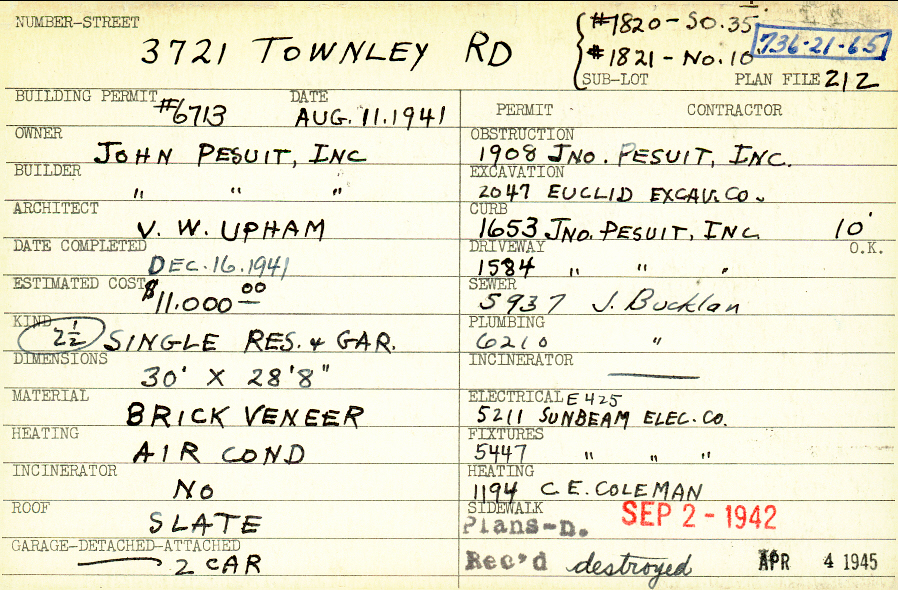 NUMBER-STREET
3721 TOWNLEY RD
#1820 - SO. 35'
#1821 - No. 10'
736-21-65
SUB-LOT PLAN FILE 212
BUILDING PERMIT #6713 DATE AUG. 11. 1941
OWNER
JOHN PESUIT, INC
BUILDER
" " "
ARCHITECT
V. W. UPHAM
DATE COMPLETED
DEC. 16. 1941
ESTIMATED COST
$11.000 00
KIND
2 1/2 SINGLE RES. & GAR.
DIMENSIONS
30' X 28'8"
MATERIAL
BRICK VENEER
HEATING
AIR COND
INCINERATOR
No
ROOF
SLATE
GARAGE-DETACHED-ATTACHED
2 CAR
PERMIT CONTRACTOR
OBSTRUCTION
1908 JNO. PESUIT, INC.
EXCAVATION
2047 EUCLID EXCAV. CO.
CURB
1653 JNO. PESUIT, INC. 10'
DRIVEWAY O.K.
1584 " " "
SEWER
5937 J. Bucklan
PLUMBING
6210 "
INCINERATOR
ELECTRICAL E425
5211 SUNBEAM ELEC. CO.
FIXTURES
5447 " " "
HEATING
1194 C. E. COLEMAN
SIDEWALK
Plans-D. SEP 2 - 1942
Rec'd destroyed APR 4 1945